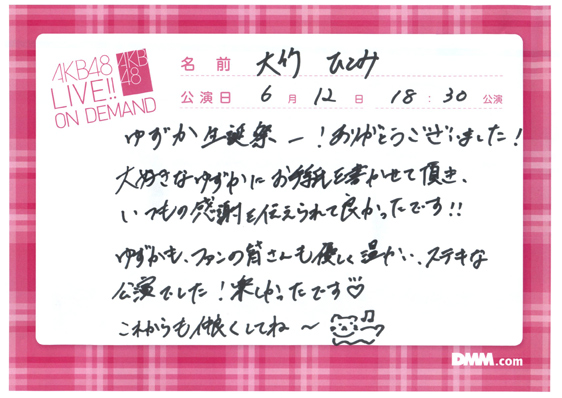 AKB48
LIVE!!
ON DEMAND
AKB
48
名前 大竹 ひとみ
公演日 6月 12日 18:30 公演
ゆずか生誕祭ー!ありがとうございました!
大好きなゆずかにお手紙を書かせて頂き、
いつもの感謝を伝えられて良かったです!!
ゆずかも、ファンの皆さんも優しく温かい、ステキな
公演でした!楽しかったです♡
これからも仲良くしてね〜
DMM.com